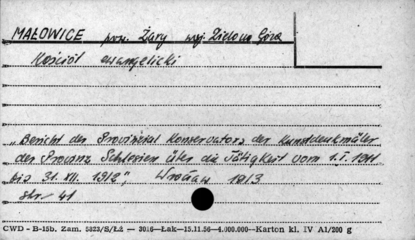 MAŁOWICE pow. Żary woj. Zielona Góra
Kościół ewangelicki
„Bericht des Provinzial Konservators der Kunstdenkmäler
der Provinz Schlesien über die Tätigkeit vom 1.I.1911
bis 31.XII.1912", Wrocław 1913
str. 41
CWD - B-15b. Zam. 5823/S/Łż — 3016—Łak—15.11.56—4.000.000—Karton kl. IV A1/200 g